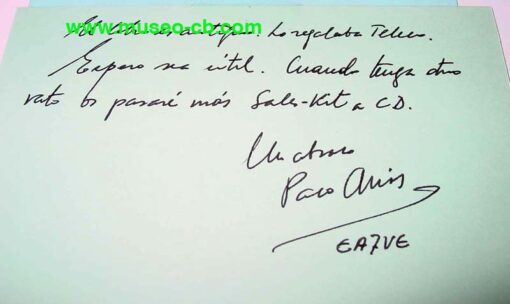 www.museo-cb.com
antiguo. Lo regalaba Telcom.
Espero sea útil. Cuando tenga otro
rato os pasaré más Sales-Kit a CD.
Un abrazo
Paco
EA7VE